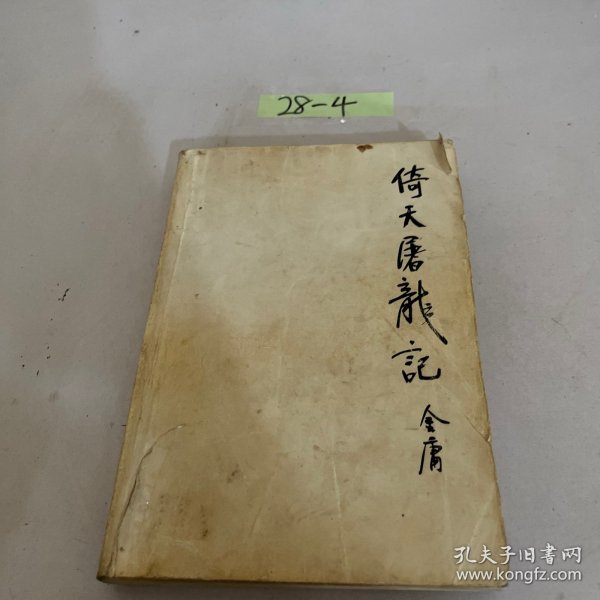 28-4
倚天屠龍記
金庸
孔夫子旧書网
www.kongfz.com